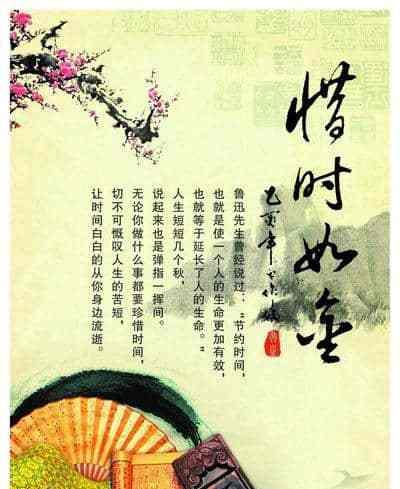 惜时如金
鲁迅先生曾经说过:“节约时间,
也就是使一个人的生命更加有效,
也就等于延长了人的生命。”
人生短短几个秋,
说起来也是弹指一挥间。
无论你做什么事都要珍惜时间,
切不可慨叹人生的苦短,
让时间白白的从你身边流逝。